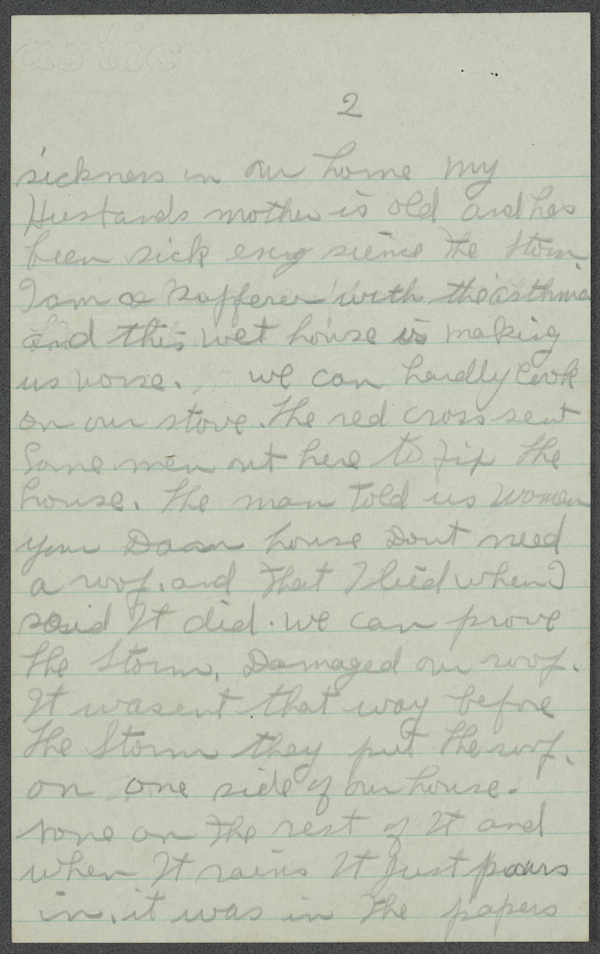 2
sickness in our home my
Husbands mother is old and has
been sick every sience the storm
I am a Sufferer with the asthma
and this wet house is making
us worse. we can hardly Cook
on our stove. The red cross sent
Some men out here to fix the
house. The man told us women
your Damn house Dont need
a roof. and that I lied when I
said It did. we can prove
the Storm, Damaged our roof.
It wasent that way before
the Storm they put the roof.
on one side of our house.
none on the rest of It and
when It rains It Just pours
in. it was in the papers